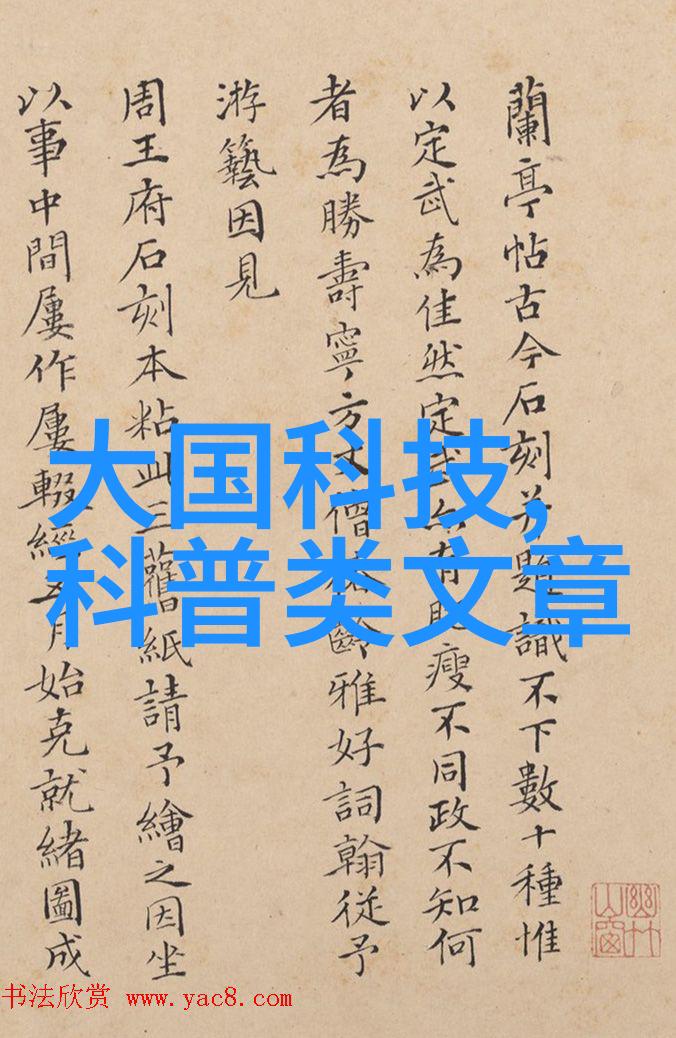 蘭亭帖古今石刻并題識不下數十種惟
以定武為佳然定武亦有肥瘦不同政不知何
者為勝壽寧方丈僧雅好詞翰從予
游藝因見
周王府石刻本粘此三舊紙請予繪之因坐
以事中間屢作屢輟經五月始克就緒圖成
幽竹山窗
大国科技,
科普类文章
书法欣赏 www.yac8.com